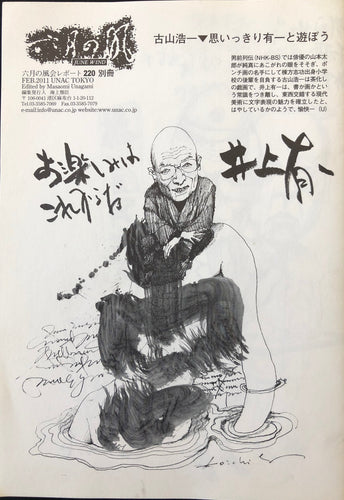 六月の風
JUNE WIND
六月の風会レポート 220 別冊
FEB.2011 UNAC TOKYO
Edited by Masaomi Unagami
編集発行人 海上雅臣
〒106-0041 港区麻布台1-1-20-112
Tel.03-3585-7069 Fax.03-3585-7079
e-mail:info@unac.co.jp www.unac.co.jp
古山浩一▼思いっきり有一と遊ぼう
男前列伝(NHK-BS)では俳優の山本太
郎が純真にあこがれの眼をそそぎ、ポ
ンチ画の名手にして棟方志功出身小学
校の後輩を自負する古山浩一は茶化し
の戯画で、井上有一は、書が画かとい
う常識をつき離し、東西交錯する現代
美術に文字表現の魅力を確立したと、
はやしているかのようで、愉快― (U)
お楽しみは
これからだ
井上有一
Koichi